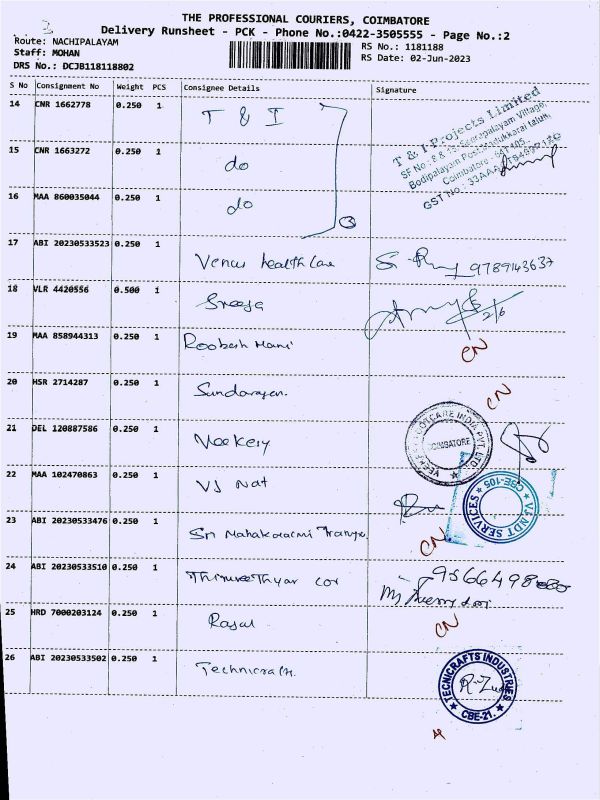 THE PROFESSIONAL COURIERS, COIMBATORE
Delivery Runsheet - PCK - Phone No.:0422-3505555 - Page No.:2
Route: NACHIPALAYAM
Staff: MOHAN
DRS No.: DCJB118118802
RS No.: 1181188
RS Date: 02-Jun-2023
S No Consignment No Weight PCS Consignee Details Signature
14 CNR 1662778 0.250 1 T & I
T & I Projects Limited
15 CNR 1663272 0.250 1 do
Coimbatore - 641 105.
16 MAA 860035044 0.250 1 do
3
17 ABI 20230533523 0.250 1 Venus health Care 9789143637
18 VLR 4420556 0.500 1 Sreeja 2/6
19 MAA 858944313 0.250 1 Roobesh Mani CN
20 HSR 2714287 0.250 1 Sundarajen. CN
21 DEL 120887586 0.250 1 Veekesy
FOOTCARE INDIA PVT. LTD
COIMBATORE
22 MAA 102470863 0.250 1 VJ Nat
VJ NDT SERVICES CBE-105
23 ABI 20230533476 0.250 1 Sri Mahakalaimi CN
24 ABI 20230533510 0.250 1 Cor
25 HRD 7000203124 0.250 1 CN
26 ABI 20230533502 0.250 1
TECNICRAFTS INDUSTRIES
CBE-21.